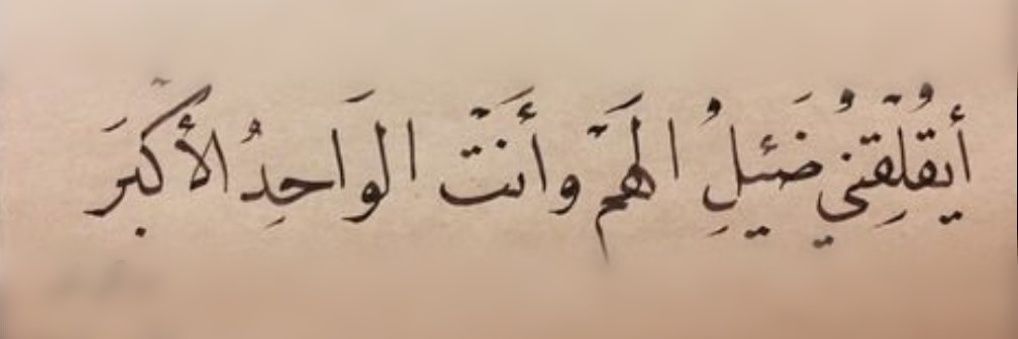 أيُقلِقُنيُ ضَئيلِ الُهَمّ وأَنتَ الوَاحِدُ الأكبَرَ